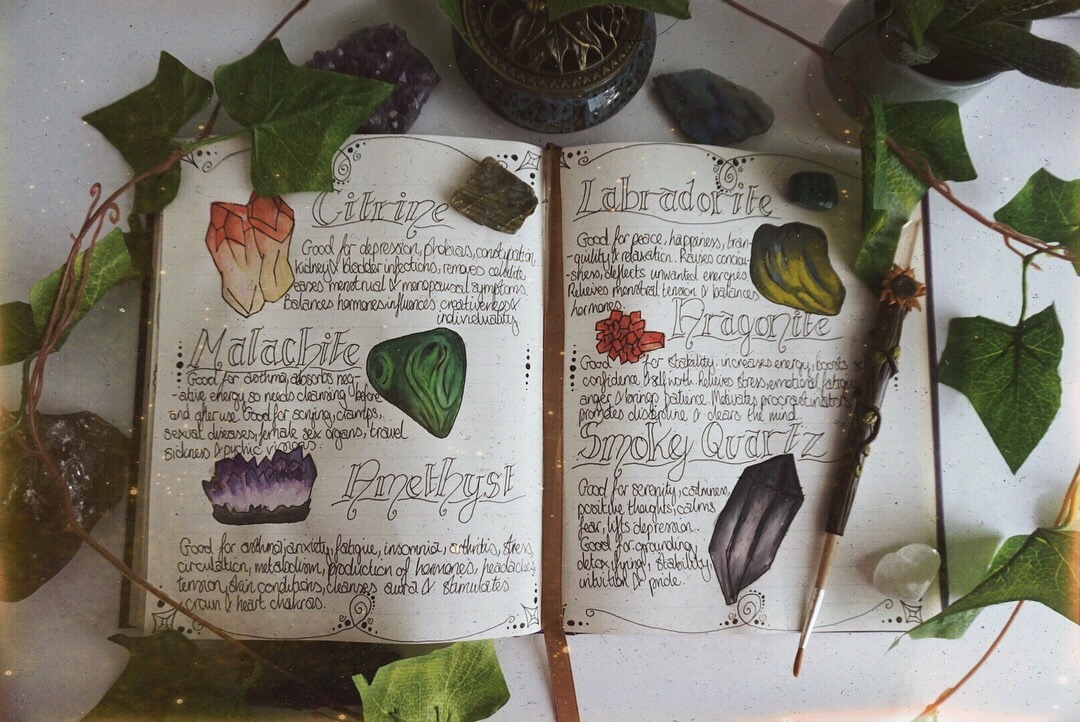 Citrine
Good for depression, phobias, constipation,
kidney & bladder infections, removes cellulite,
eases menstrual & menopausal symptoms.
Balances hormones influences creativeness &
individuality
Malachite
Good for asthma, absorbs neg-
-ative energy so needs cleansing before
and after use. Good for scrying, cramps,
sexual diseases, female sex organs, travel
sickness & psychic visions.
Amethyst
Good for asthma, anxiety, fatigue, insomnia, arthritis, stress,
circulation, metabolism, production of hormones, headaches,
tension, skin conditions, cleanses aura & stimulates
crown & heart chakras.
Labradorite
Good for peace, happiness, tran-
-quility & relaxation. Raises consciou-
-shess, deflects unwanted energies.
Relieves menstrual tension & balances
hormones.
Aragonite
Good for stability, increases energy, boosts
confidence & self worth. Relieves stress, emotional fatigue,
anger & brings patience. Motivates procrastinators,
promotes discipline & clears the mind.
Smoky Quartz
Good for serenity, calmness,
positive thoughts, calms
fear, lifts depression.
Good for grounding,
detoxifying, stability,
intuition & pride.